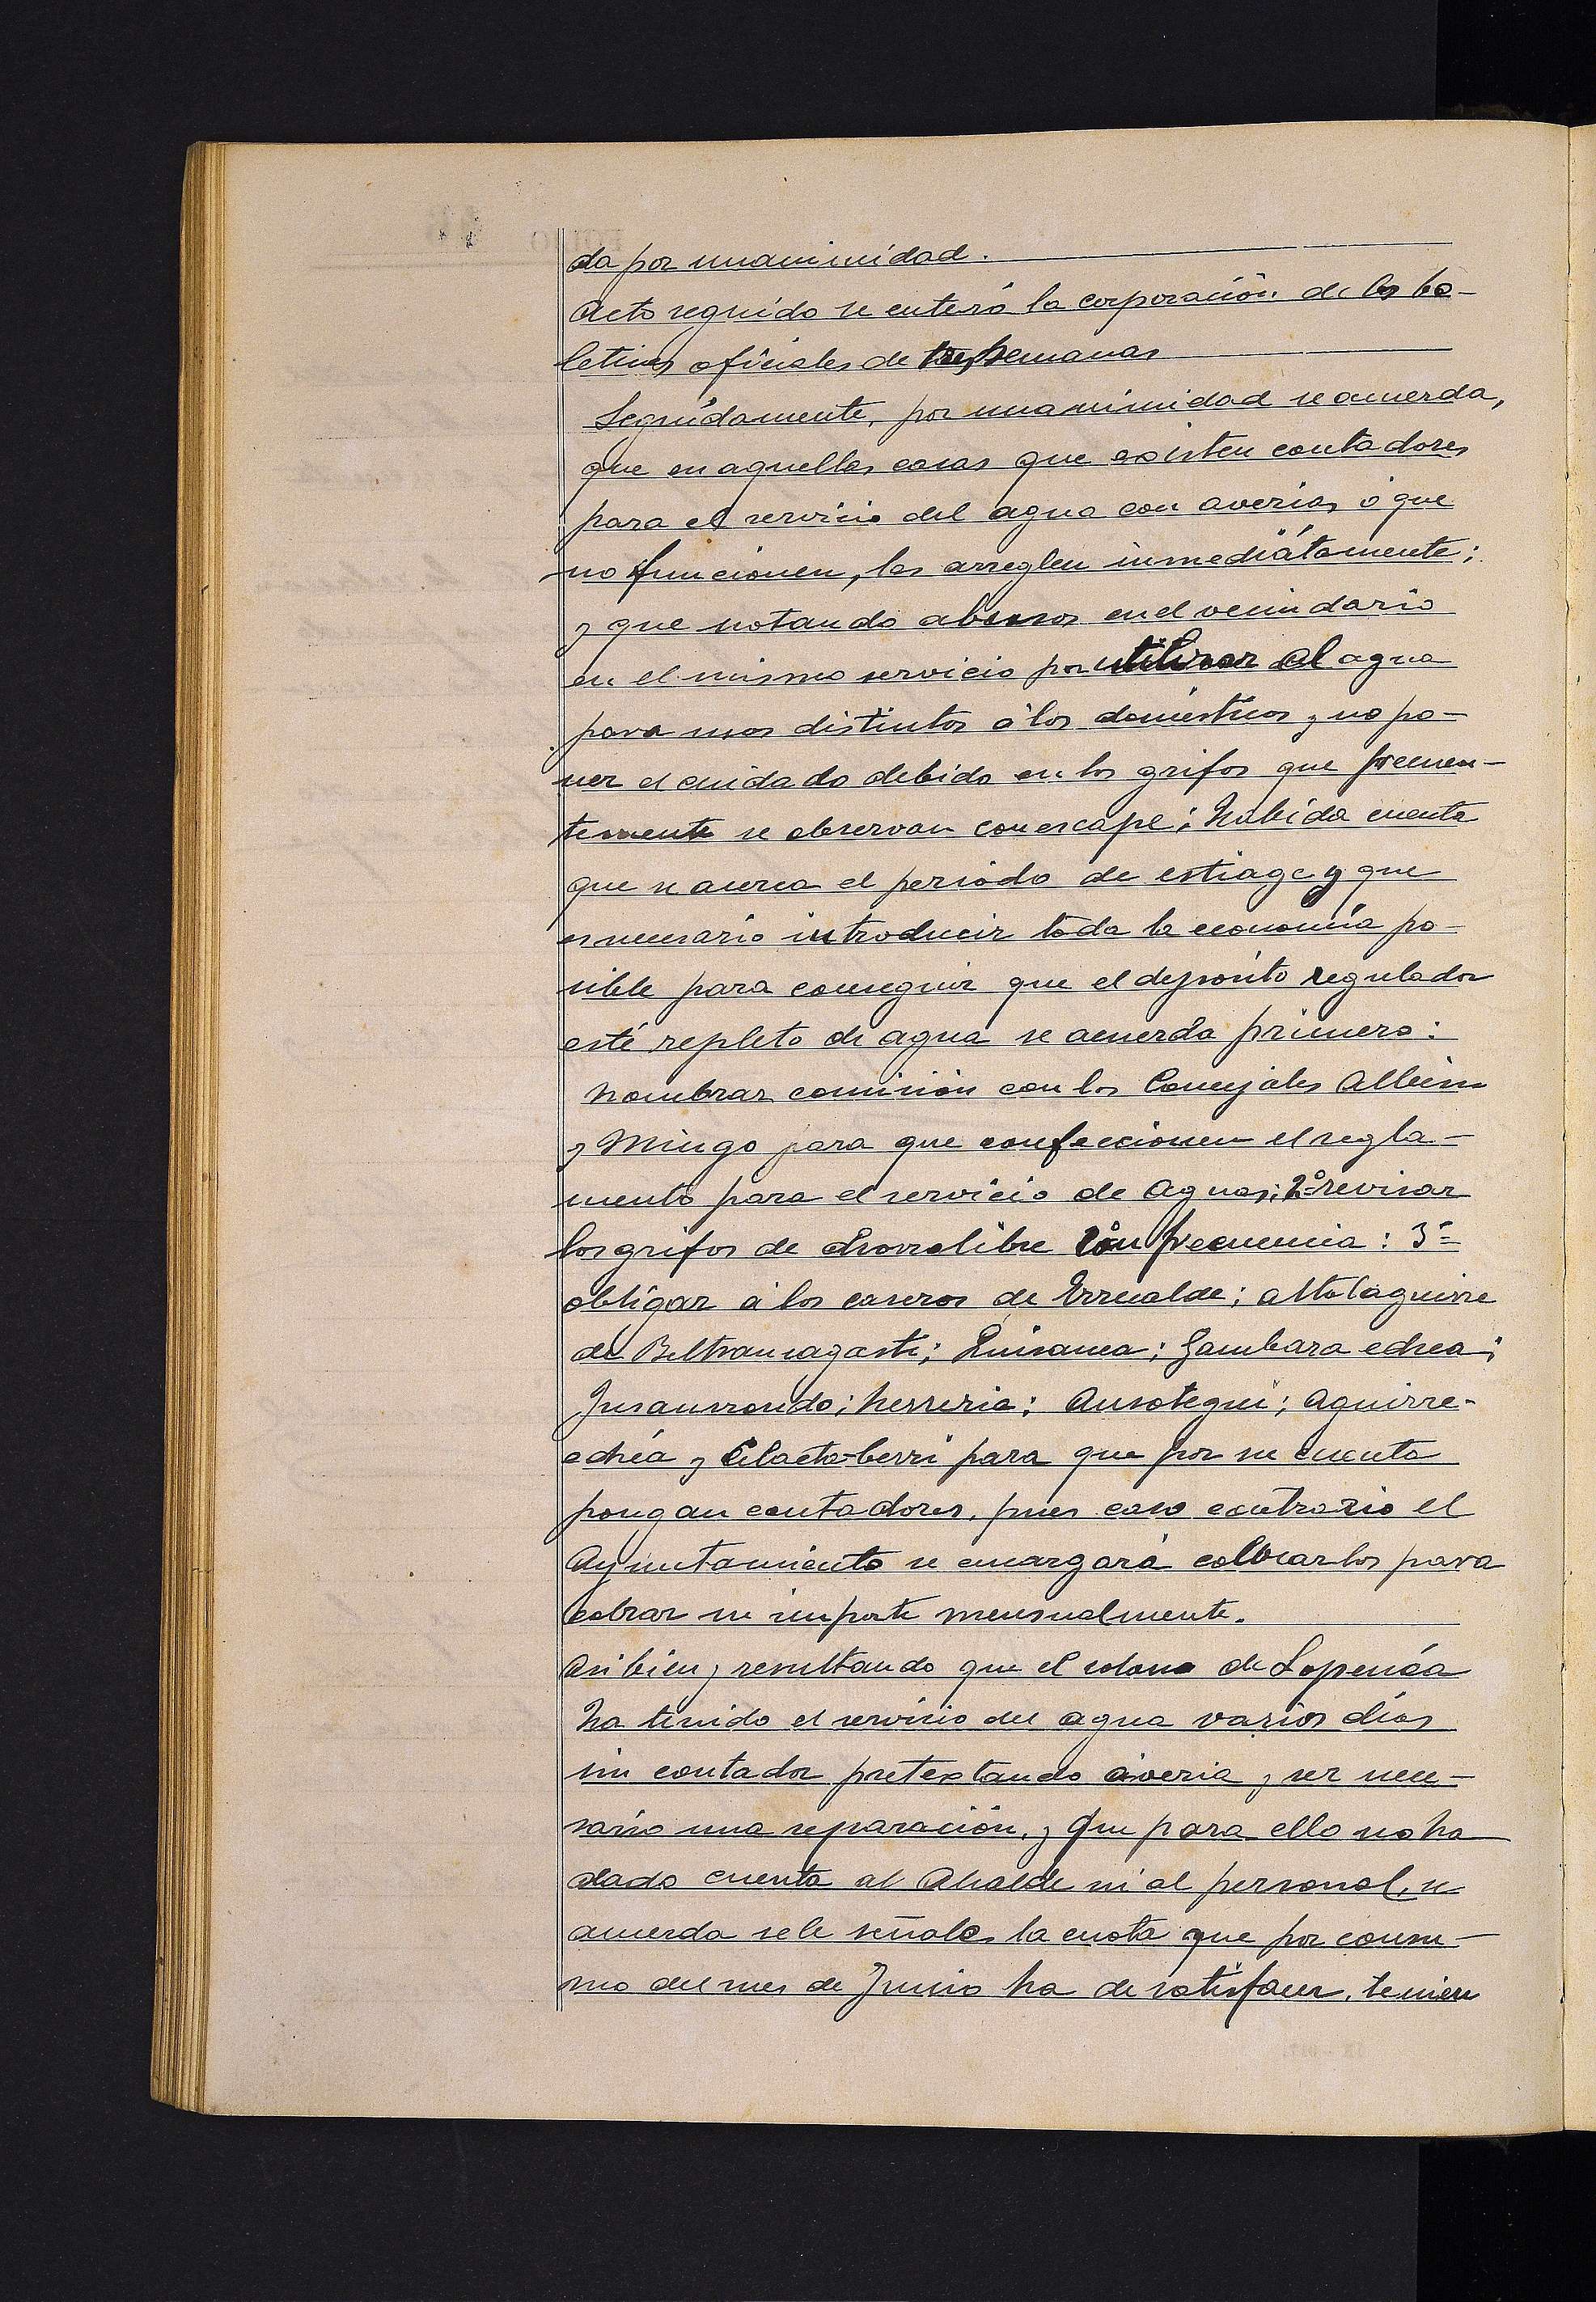 da por unanimidad.
Acto seguido se enteró la corporación de los bo-
letines oficiales de tres semanas
Seguidamente, por unanimidad se acuerda,
que en aquellas casas que existen contadores
para el servicio del agua con averias ó que
no funcionen, los arreglen inmediátamente;
y que notando abusos en el vecindario
en el mismo servicio por utilizar el agua
para usos distintos á los domésticos y no po-
ner el cuidado debido en los grifos que frecuen-
temente se observan con escape; habida cuenta
que se acerca el período de estiage y que
es necesario introducir toda la economía po-
sible para conseguir que el deposito regulador
esté repleto de agua se acuerda primero:
Nombrar comisión con los Concejales
y Mingo para que confeccionen el regla-
mento para el servicio de Aguas; 2º revisar
los grifos de chorro libre con frecuencia: 3º
obligar á los caseros de Errealde; Altolaguirre
de Beltranzagasti; Gambara echea;
Jusansrondo; herreria; Ansotegui; Aguirre-
echéa y Celaeta-berri para que por su cuenta
pongan contadores, pues caso contrario el
Ayuntamiento se encargará colocarlos para
cobrar su importe mensualmente.
Asi bien, resultando que el colono de Lopenéa
ha tenido el servicio del agua varios días
sin contador pretextando averia y ser nece-
sario una reparación, y que para ello no ha
dado cuenta al Alcalde ni al personal, se
acuerda se le señale la cuota que por consu-
mo del mes de Junio ha de satisfacer, tenien